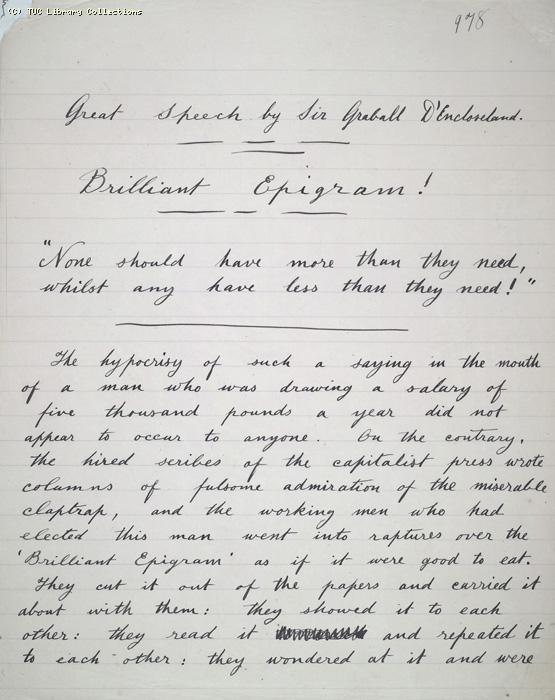 (C) TUC Library Collections
978
Great Speech by Sir Graball D'Encloseland.
Brilliant Epigram!
"None should have more than they need,
whilst any have less than they need!"
The hypocrisy of such a saying in the mouth
of a man who was drawing a salary of
five thousand pounds a year did not
appear to occur to anyone. On the contrary,
the hired scribes of the capitalist press wrote
columns of fulsome admiration of the miserable
claptrap, and the working men who had
elected this man went into raptures over the
'Brilliant Epigram' as if it were good to eat.
They cut it out of the papers and carried it
about with them: they showed it to each
other: they read it and repeated it
to each other: they wondered at it and were